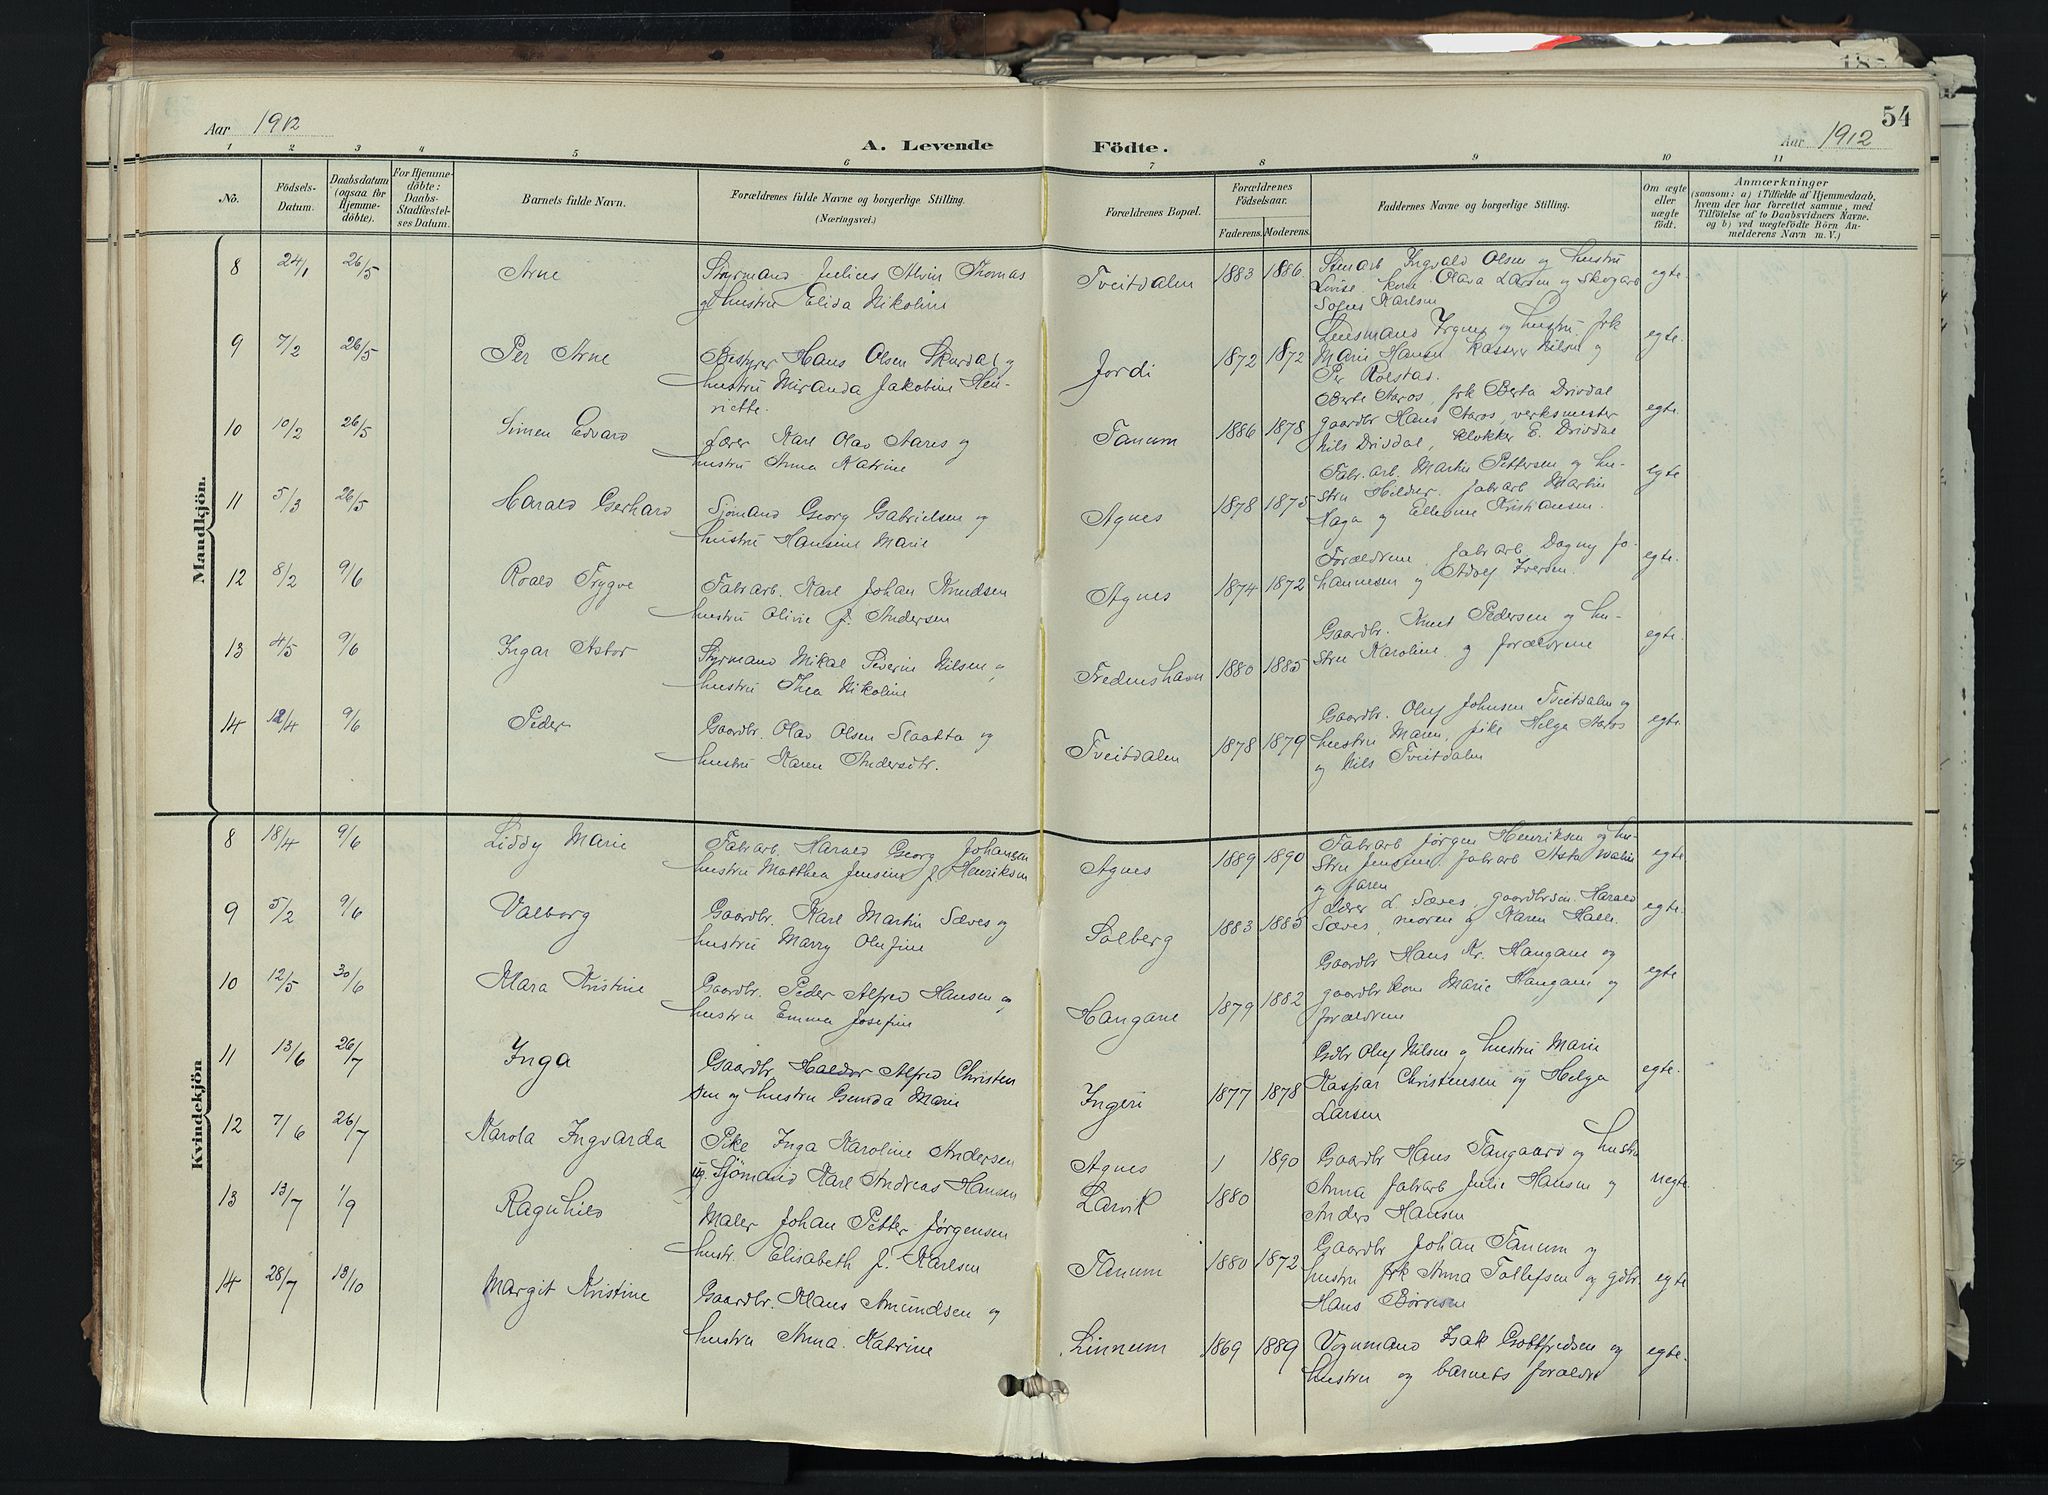 54
Aar 1912
A. Levende Födte.
Aar 1912
1 2 3 4 5 6 7 8 9 10 11
No.
Födsels-
Datum.
Daabsdatum
(ogsaa for
Hjemme-
döbte).
For Hjemme-
döbte:
Daabs-
Stadfæstel-
ses Datum.
Barnets fulde Navn.
Forældrenes fulde Navne og borgerlige Stilling.
(Næringsvei.)
Forældrenes Bopæl.
Forældrenes
Födselsaar.
Faderens. Moderens.
Faddernes Navne og borgerlige Stilling.
Om ægte
eller
uægte
födt.
Anmærkninger
(saasom: a) i Tilfælde af Hjemmedaab,
hvem der har forrettet samme, med
Tilföielse af to Daabsvidners Navne.
og b) ved uægtefödte Börn An-
melderens Navn m. V.)
Mandkjön.
8 24/1 26/5 Arne
Styrmand Julius Alvin Thomas
og hustru Elida Nikoline
Tveitdalen 1883 1886
Stenarb Ingvald Olsen og hustru
Lovise, kone Olava Larsen og Skogarb
Karlsen
egte
9 7/2 26/5 Per Arne
Bestyrer Hans Olsen Skurdal og
hustru Miranda Jakobine Hen-
riette.
Jordi 1872 1872
Lensmand og hustru, frk
Marie Hansen, kasserer Nilsen og
Per Rolstad.
egte.
10 10/2 26/5 Simen Edvard
Lærer Karl Olav Aares og
hustru Anna Katrine
Tanum 1886 1878
Berte Aaros, frk Berta Drivdal
gaardbr Hans Aaros, verksmester
Nils Drivdal, klokker E. Drivdal
egte.
11 5/3 26/5 Harald Gerhard
Sjömand Georg Gabrielsen og
hustru Hansine Marie
Agnes 1878 1875
Fabr.arb. Martin Pettersen og hu-
stru Hilder, fabrarb Martin
Haga og Ellevine Kristiansen.
egte
12 8/2 9/6 Roald Trygve
Fabrarb. Karl Johan Knudsen
hustru Olivie f. Andersen
Agnes 1874 1872
Forældrene, fabrarb. Dagny Jo-
hannesen og Adolf Iversen.
egte.
13 4/5 9/6 Ingar Astor
Styrmand Mikal Severin Nilsen og
hustru Thea Nikoline
Fredenshavn 1880 1885
Gaardbr. Knut Pedersen og hu-
stru Karoline og forældrene
egte.
14 12/4 9/6 Peder
Gaardbr. Olav Olsen Slaatta og
hustru Karen Andersdtr.
Tveitdalen 1878 1879
Gaardbr. Oluf Johnsen Tveitdalen og
hustru Maren, pike Helga Aaros
og Nils Tveitdalen
egte
Kvindekjön
8 18/4 9/6 Liddy Marie
Fabrarb. Harald Georg Johansen
hustru Matthea Jensine f. Henriksen
Agnes 1889 1890
Fabrarb Jørgen Henriksen og hu-
stru Jensine, fabrarb Asta
og faren
egte
9 5/2 9/6 Valborg
Gaardbr. Karl Martin Sæves og
hustru Marry Olufine
Solberg 1883 1885
Lærer L. Sæves, gaardbrsøn Harald
Sæves, moren og Karen Halle.
egte.
10 12/5 30/6 Mara Kristine
Gaardbr. Peder Alfred Hansen og
hustru Emma Josefine
Hangane 1879 1882
Gaardbr Hans Kr. Hangane og
gaardbrkone Marie Hangane og
forældrene
egte
11 13/6 26/7 Inga
Gaardbr Haldor Alfred Christen
sen og hustru Gunda Marie
Ingeri 1877 1878
Gdbr Oluf Nilsen og hustru Marie
Kaspar Christensen og Helga
Larsen
egte.
12 7/6 26/7 Karola Ingvarda
Pike Inga Karoline Andersen
ug. Sjömand Karl Andreas Hansen
Agnes 1 1890
Larvik 1880
Gaardbr Hans Tangaard og hustru
Anna fabrarb Julie Hansen og
Anders Hansen
uegte
13 13/7 1/9 Ragnhild
Maler Johan Petter Jørgensen
hustr. Elisabeth f. Karlsen
Tanum 1880 1872
Gaardbr Johan Tanum og
hustru frk Anna Tollefsen og gdbr
Hans Børresen
egte
14 28/7 13/10 Margit Kristine
Gaardbr. Klaus Amundsen og
hustru Anna Katrine
Linnum 1869 1889
Vognmand Isak Gottfredsen og
hustru og barnets forældre
egte.